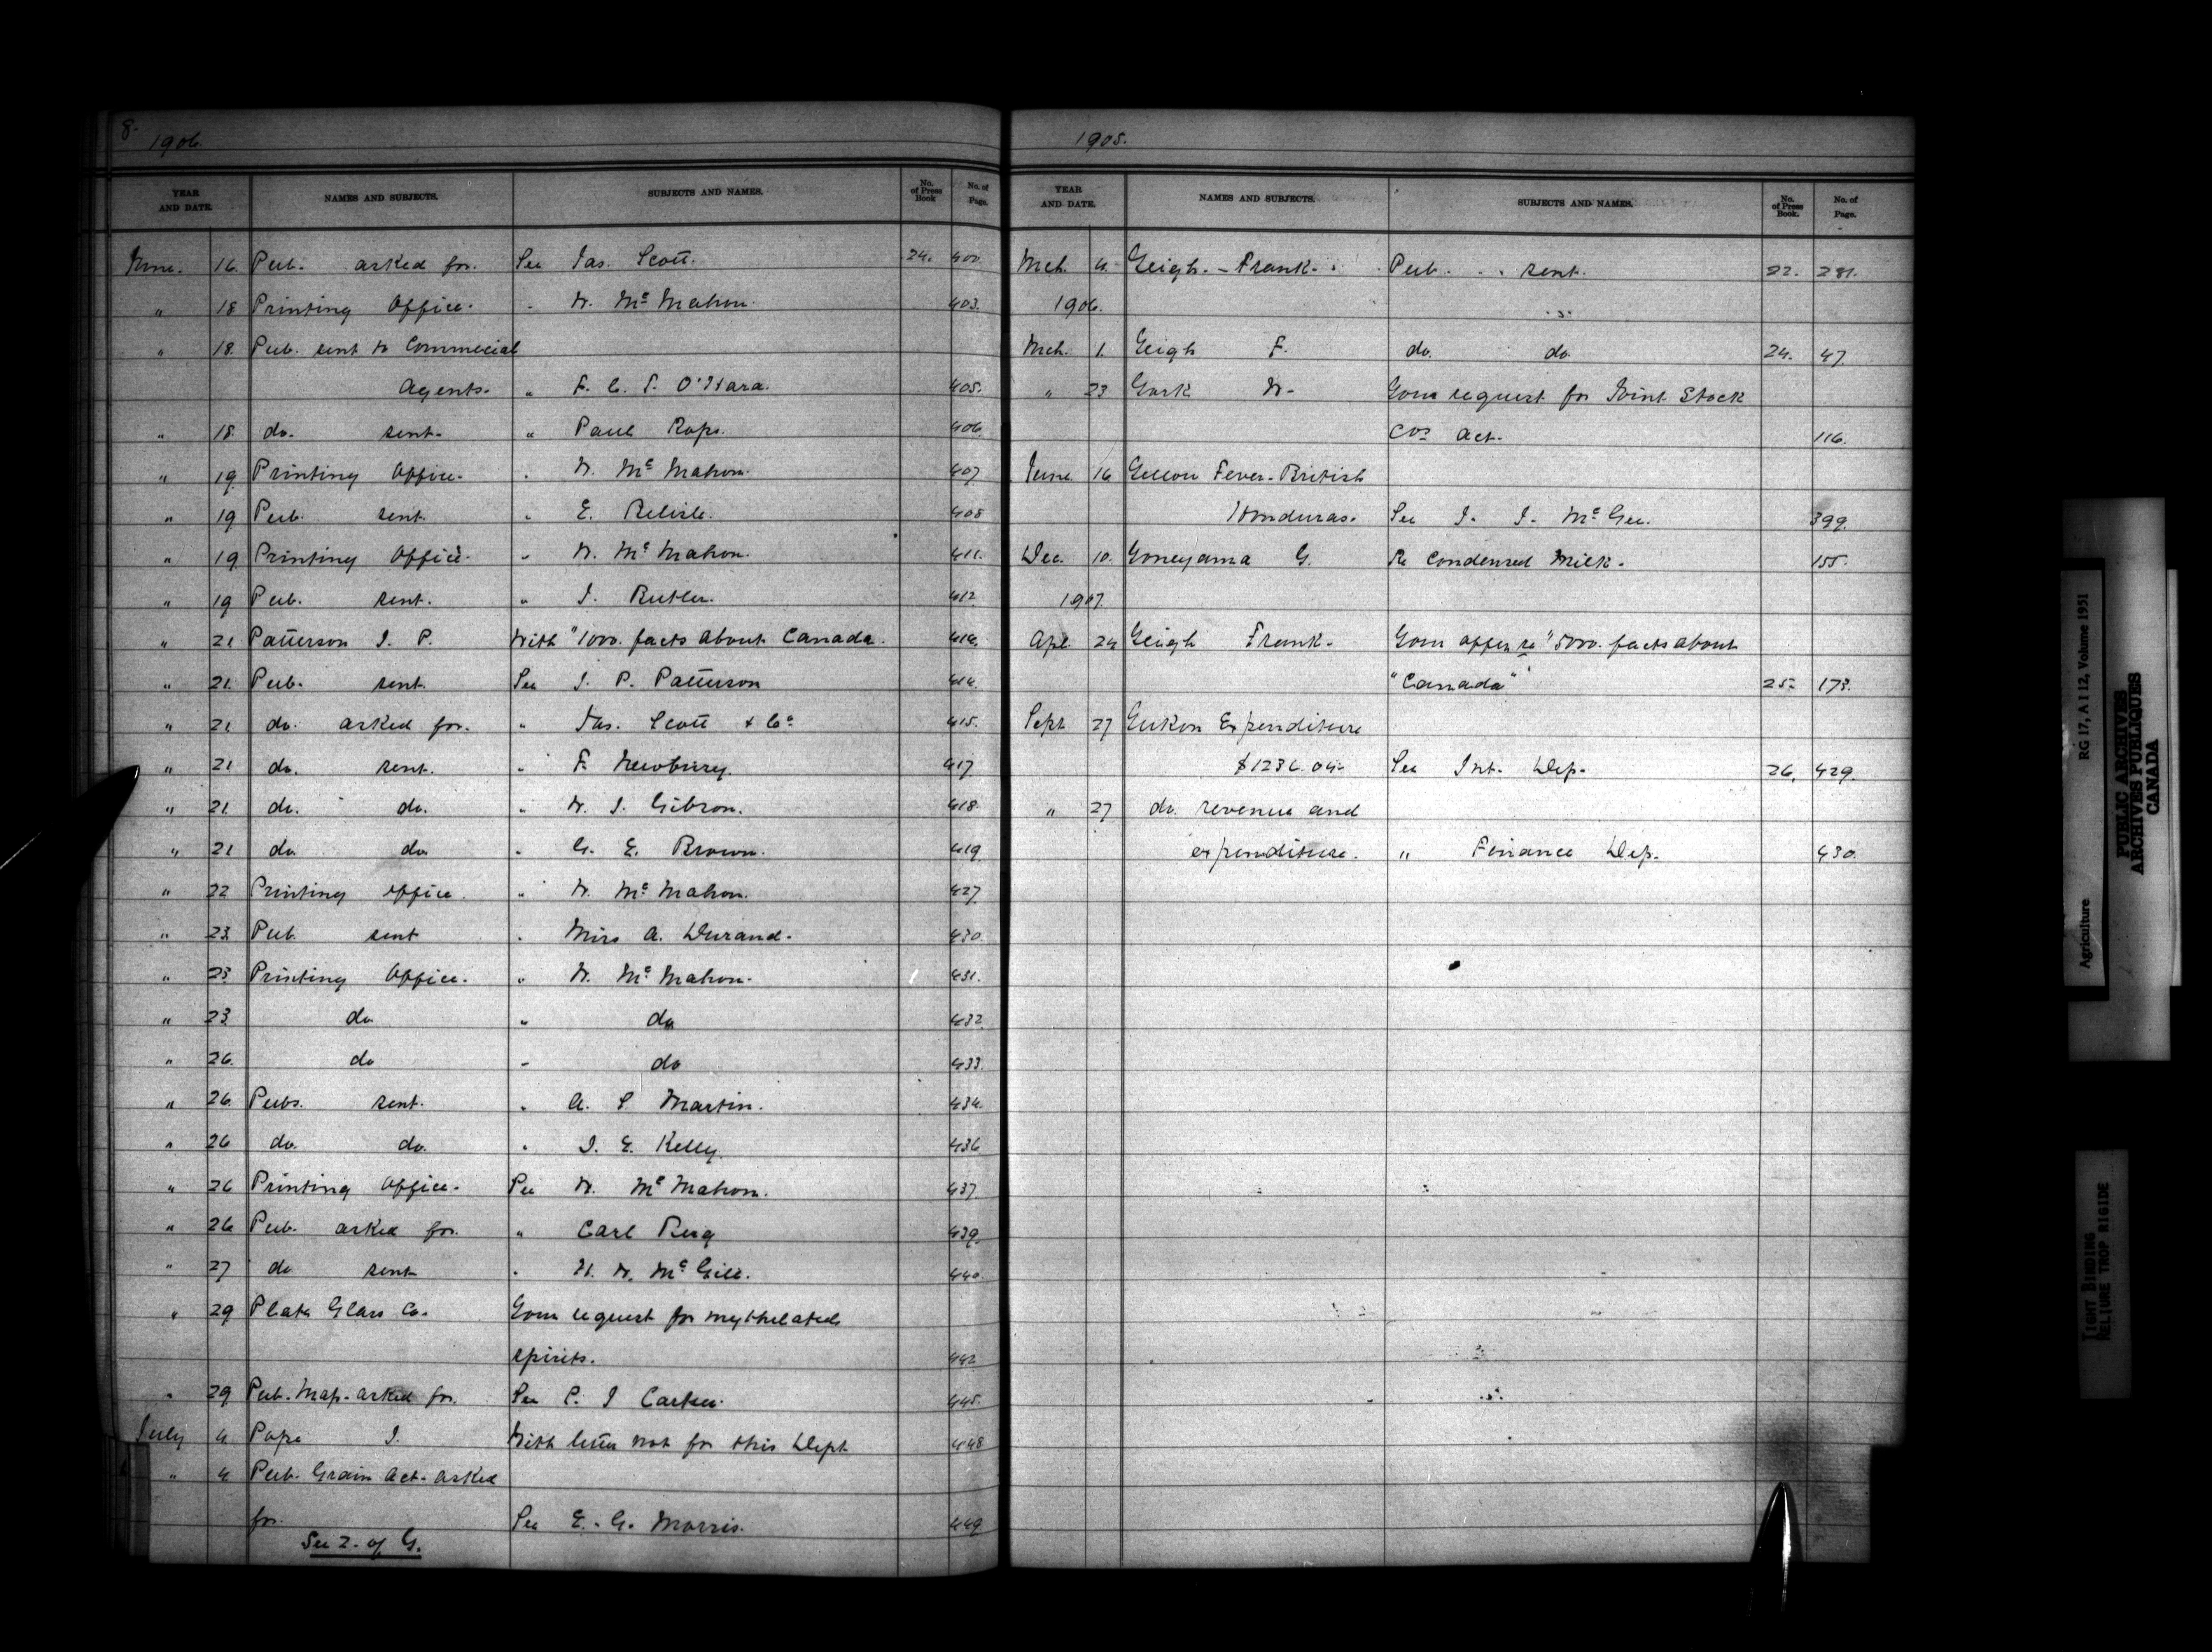 8.
1906.
YEAR AND DATE. NAMES AND SUBJECTS. SUBJECTS AND NAMES. No. of Press Book No. of Page.
June. 16. Pub. asked for. See Jas. Scott. 24. 400.
" 18 Printing Office. " W. Mc Mahon. 403.
" 18. Pub. sent to Commecial
Agents. " F. C. T. O'Hara. 405.
" 18. do. sent. " Paul Rops. 406.
" 19. Printing Office. " W. Mc Mahon. 407.
" 19 Pub. sent. " E. Belisle. 408
" 19 Printing Office. " W. Mc Mahon. 411.
" 19 Pub. sent. " J. Butler. 412.
" 21 Patterson J. P. With "1000. facts about Canada. 414.
" 21. Pub. sent. See J. P. Patterson 414.
" 21. do. asked for. " Jas. Scott & Co 415.
" 21 do. sent. " F. Newbury. 417.
" 21. do. do. " W. J. Gibson. 418.
" 21 do do " G. E. Brown. 419
" 22 Printing Office. " W. Mc Mahon. 427.
" 23 Pub. sent " Miss A. Durand. 430.
" 23. Printing Office. " W. Mc Mahon. 431.
" 23. do " do 432.
" 26. do " do 433.
" 26. Pubs. sent. " A. S Martin. 434.
" 26 do. do. " J. E. Kelly. 436
" 26 Printing Office. See W. Mc Mahon. 437.
" 26 Pub. asked for. " Carl Berg 439.
" 27 do sent " H. W. Mc Gill. 440.
" 29 Plate Glass Co. Your request for mythelated
spirits. 442.
" 29 Pub. Map. asked for. See P. J Carter. 445.
July 4. Pope J. With letter not for this Dept 448
" 4. Pub. Grain Act. asked
for. See E. G. Morris. 449
See 2. of G.
1905.
YEAR AND DATE. NAMES AND SUBJECTS. SUBJECTS AND NAMES. No. of Press Book. No. of Page.
Mch. 4. Yeigh. - Frank. Pub. sent. 22. 281.
1906.
Mch. 1. Yeigh F. do. do. 24. 47.
" 23 York W. Your request for Joint Stock
Cos Act. 116.
June 16 Yellow Fever. British
Honduras. See J. J. Mc Gee. 399.
Dec. 10. Yoneyama G. Re Condensed Milk. 155.
1907.
Apl. 24 Yeigh Frank. Your offer re "5000. facts about
"Canada" 25. 173.
Sept 27 Yukon Expenditure
$1236.04. See Int. Dep. 26. 429.
" 27 do. revenue and
expenditure. " Finance Dep. 430.
Agriculture RG 17, A I 12, Volume 1951
PUBLIC ARCHIVES
ARCHIVES PUBLIQUES
CANADA
TIGHT BINDING
RELIURE TROP RIGIDE